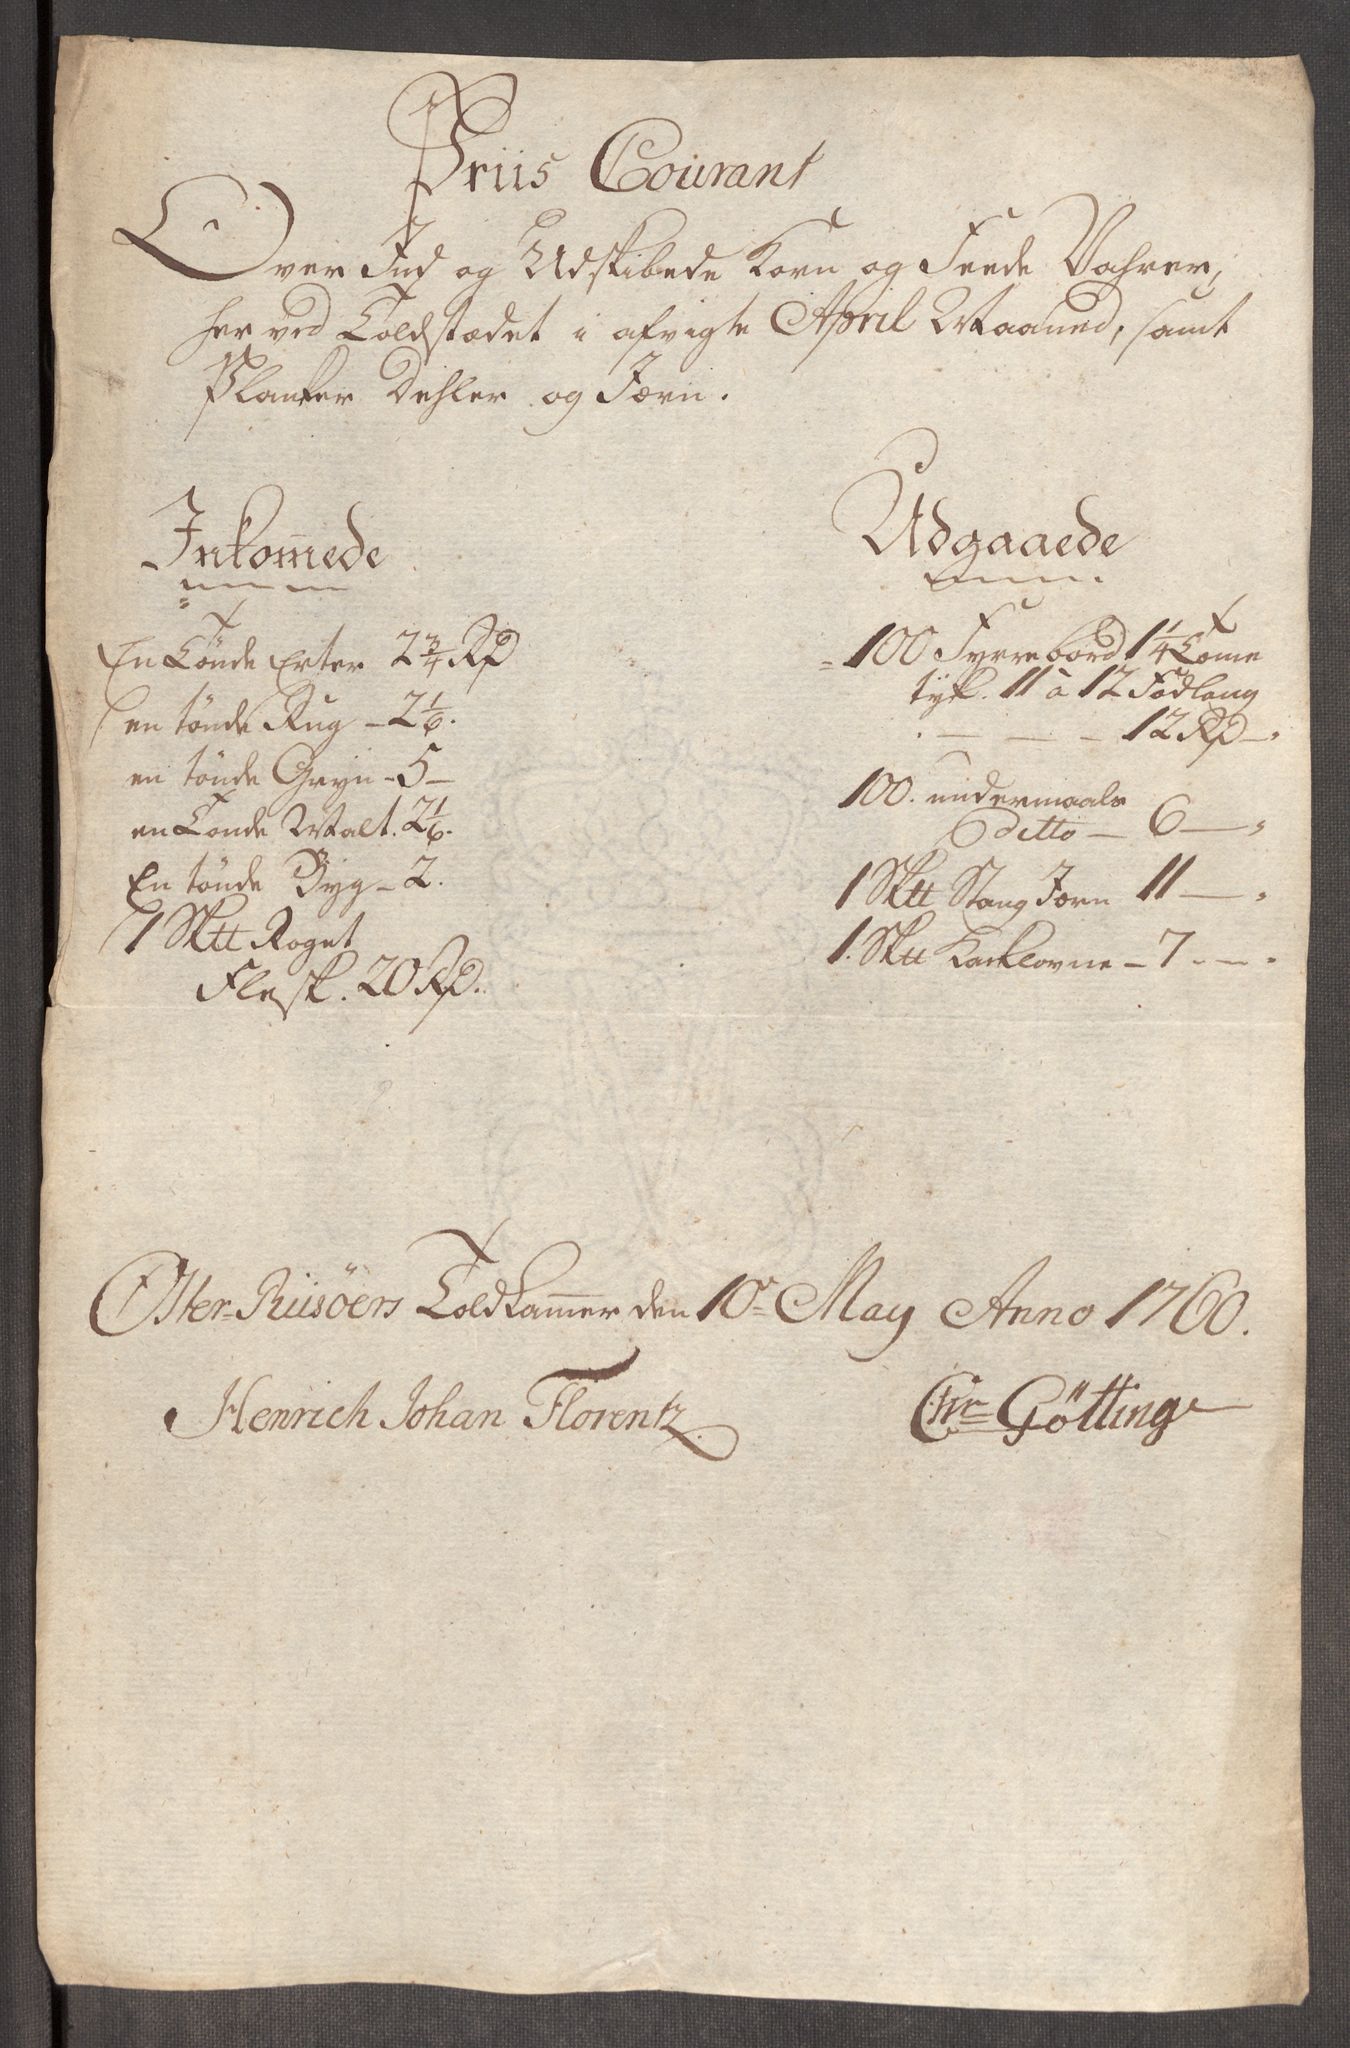 Priis Courant
Over Ind og Udskibede Korn og Feede Vahrer,
her ved Toldstædet i afvigte April Maaned, samt
Planker Dehler og Jærn.
Inkom̄ede
En Tønde Erter 2 3/4 Rd
en tønde Rug - 2 1/6.
en tønde Gryn - 5 -
en Tønde Malt. 2 1/6.
En tønde Byg - 2.
1 Sktt Røget
Flesk. 20 Rd.
Udgaaede
100 Fyrrebord 1 1/4 Tome
tyk. 11 à 12 Fod lang
. - - - 12 Rd -.
100. undermaals
ditto - 6 -.
1 Sktt Stang Jærn 11 -.
1. Sktt Kackelovne - 7 - -.
Øster-Riisöers Toldkam̄er den 10de May Anno 1760.
Henrich Johan Florentz
Chr Götting